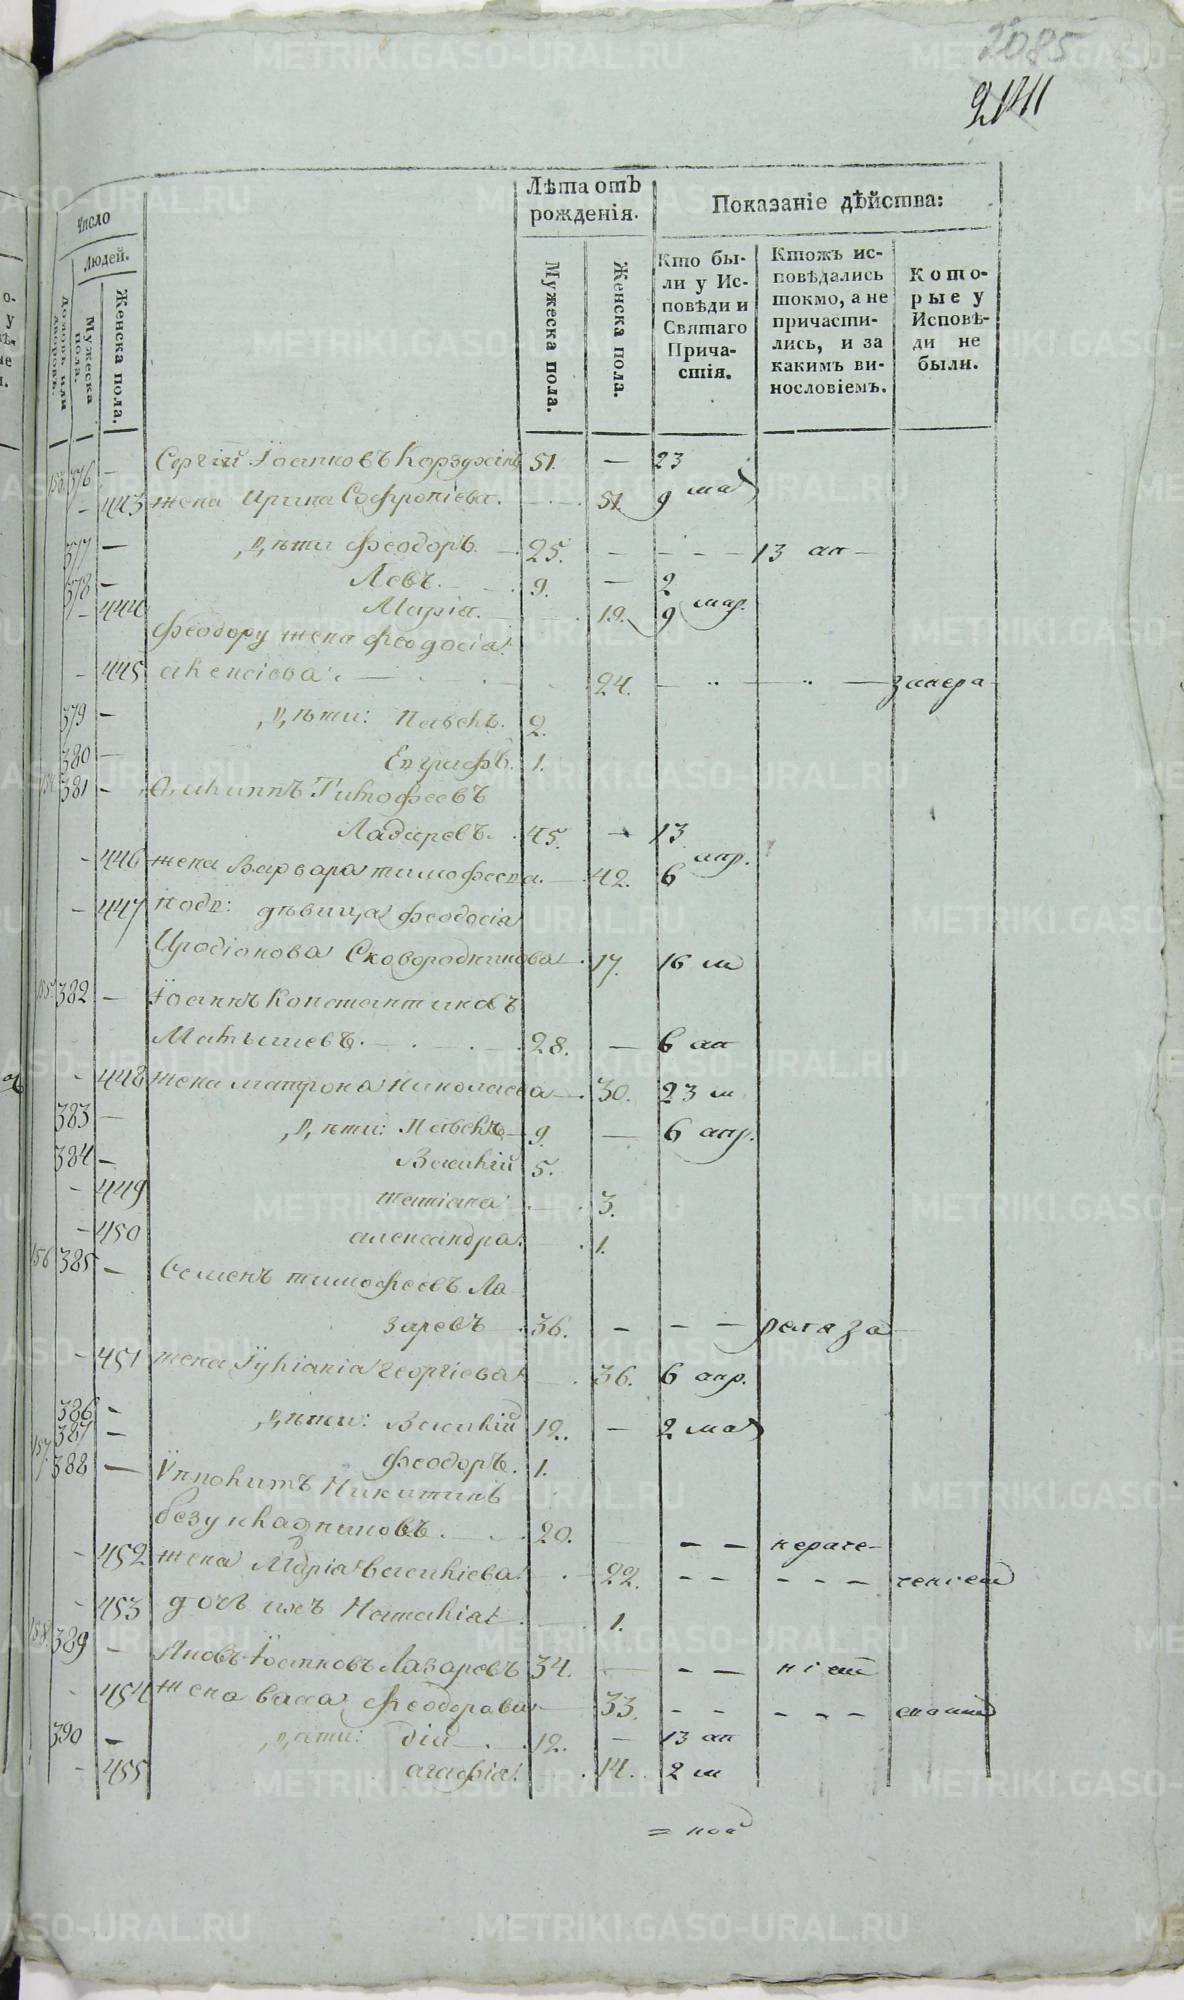 2085
2141
Число Людей.
Домовъ или дворовъ.
Мужеска пола.
Женска пола.
Лѣта отъ рожденія.
Мужеска пола.
Женска пола.
Показаніе дѣйства:
Кто бы-
ли у Ис-
повѣди и
Святаго
Прича-
стія.
Ктожъ ис-
повѣдались
токмо, а не
причасти-
лись, и за
какимъ ви-
нословіемъ.
Кото-
рые у
Исповѣ-
ди не
были.
153 376 — Сергій Іоанновъ 51. — 23
— 443 жена Ирина Софроніева. 51. 9 мая
377 — Дѣти Феодоръ. 25. — — — — 13 ап—
378 — Левъ. 9. — 2
— 444 Марія. 19. 9 мар.
Феодору жена Феодосія
— 445 24. — „ — „ —
379 — Дѣти: Павелъ. 2.
380 — Евграфъ. 1.
154 381 — Филиппъ Тимофеевъ
Лазаревъ. 45. — 13
— 446 жена Варвара Тимофеева. 42. 6 апр.
— 447 подв: дѣвица Феодосія
Иродіонова Сковородникова 17. 16 м
155 382 — Іоаннъ Константиновъ
28. — 6 ап
— 448 жена Матрона Николаева 30. 23 м
383 — Дѣти: Павелъ 9. — 6 апр.
384 — Василій 5.
— 449 Татіана 3.
— 450 Александра. 1.
156 385 — Семенъ Тимофеевъ Ла-
заревъ 36. — — —
— 451 жена Іуліанія Георгіева 36. 6 апр.
386 — Дѣти: Василій 12. — 2 мая
387 — Феодоръ. 1.
157 388 — Іпполитъ Никитинъ
20. — — нераче-
— 452 жена Марія Василіева. 22. — — — — — ченіем
— 453 дочь ихъ Наталіа 1.
158 389 — Яковъ Іоанновъ Лазаревъ 34. — — —
— 454 жена Васса Феодорова 33. — — — — —
390 — Дѣти: 12. — 13 ап
— 455 Агафіа. 14. 2 м